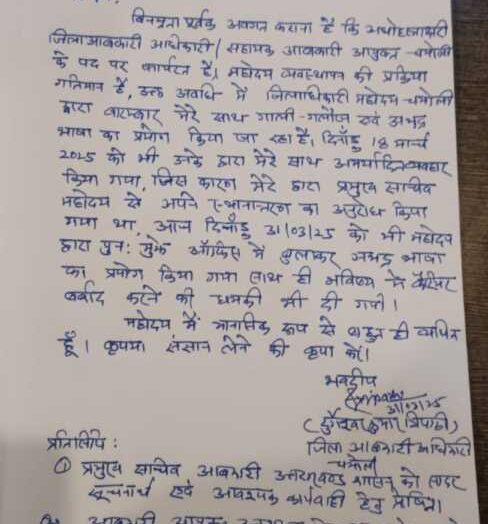 विनम्रता पूर्वक अवगत कराना है कि अधोहस्ताक्षरी
जिला आबकारी अधिकारी/ सहायक आबकारी आयुक्त - चमोली
के पद पर कार्यरत है, महोदय व्यवस्थापन की प्रक्रिया
गतिमान है, उक्त अवधि में जिलाधिकारी महोदय - चमोली
द्वारा बारम्बार मेरे साथ गाली - गलौज एवं अभद्र
भाषा का प्रयोग किया जा रहा है, दिनाँक 18 मार्च
2025 को भी उनके द्वारा मेरे साथ अमर्यादित व्यवहार
किया गया, जिस कारण मेरे द्वारा प्रमुख सचिव
महोदय से अपने स्थानान्तरण का अनुरोध किया
गया था, आज दिनाँक 31/03/25 को भी महोदय
द्वारा पुनः मुझे ऑफिस में बुलाकर अभद्र भाषा
का प्रयोग किया गया साथ ही भविष्य में कैरियर
बर्बाद करने की धमकी भी दी गयी।
महोदय में मानसिक रूप से बहुत ही व्यथित
हूँ। कृपया संज्ञान लेने की कृपा करें।
भवदीय
31/03/25
(दुर्गेश्वर कुमार त्रिपाठी)
जिला आबकारी अधिकारी
चमोली
प्रतिलिपि :
① प्रमुख सचिव आबकारी उत्तराखण्ड शासन को सादर
सूचनार्थ एवं आवश्यक कार्यवाही हेतु प्रेषित।